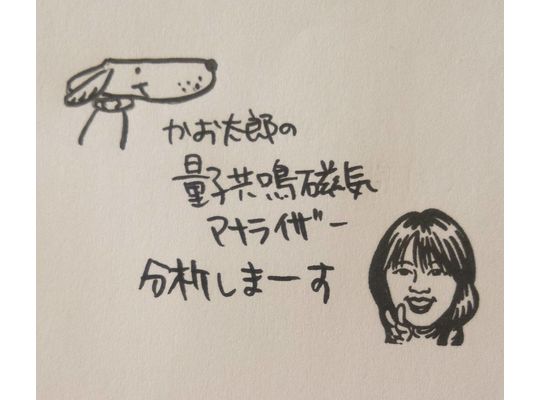 かお太郎の
量子共鳴磁気
アナライザー
分析しまーす